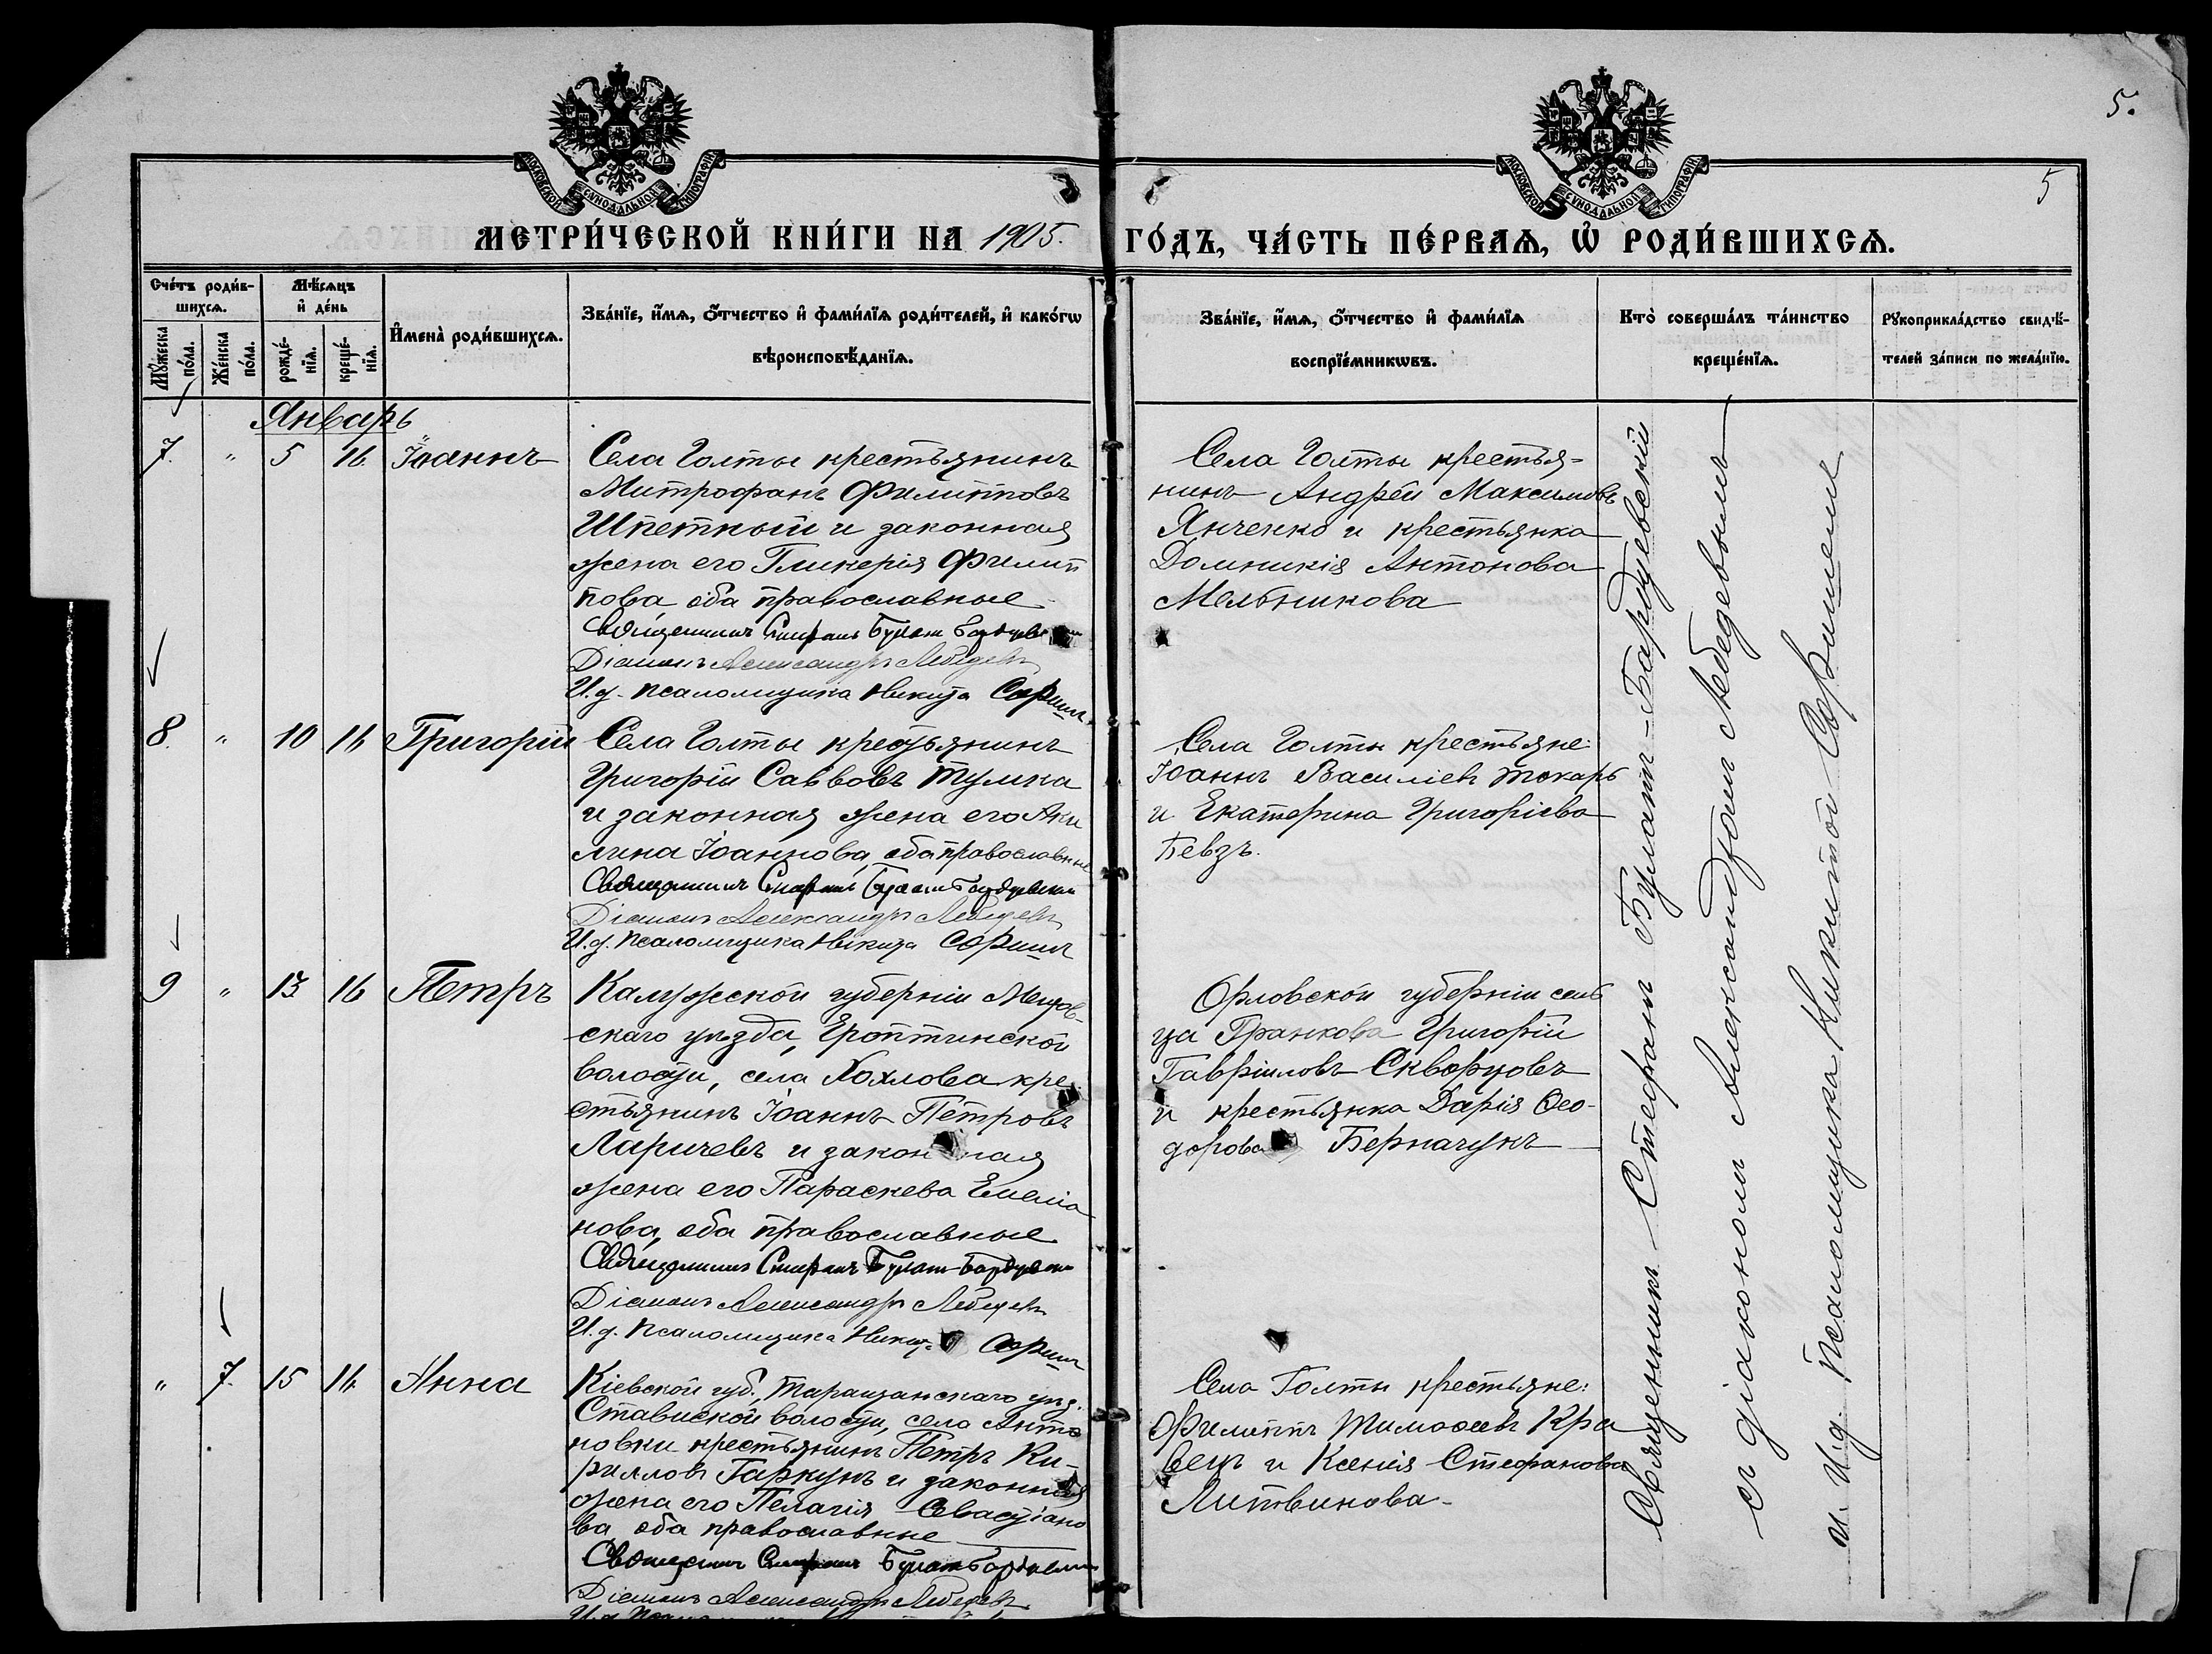 5.
5
МОСКОВСКОЙ СѴНОДАЛЬНОЙ ТИПОГРАФІИ
МОСКОВСКОЙ СѴНОДАЛЬНОЙ ТИПОГРАФІИ
МЕТРИ́ЧЕСКОЙ КНИ́ГИ НА 1905. ГО́ДЪ, ЧА́СТЬ ПЕ́РВАѦ, Ѡ҆ РОДИ́ВШИХСѦ.
Сче́тъ роди́в-
шихсѧ.
Мꙋ́жеска по́ла.
Же́нска по́ла.
Мѣ́сѧцъ
и҆ де́нь
рожде́-
нїѧ.
креще́-
нїѧ.
И҆мена̀ роди́вшихсѧ.
Зва́нїе, и҆́мѧ, ѻ҆́тчество и҆ фами́лїѧ роди́телей, и҆ како́гѡ
вѣроисповѣ́данїѧ.
Зва́нїе, и҆́мѧ, ѻ҆́тчество и҆ фами́лїѧ
воспрїе́мникѡвъ.
Кто̀ соверша́лъ та́инство
креще́нїѧ.
Рꙋкоприкла́дство свидѣ́-
телей за́писи по жела́нїю.
Январь
7. " 5 16. Іоаннъ
Села Голты крестьянинъ
Митрофанъ Филипповъ
Шпетный и законная
жена его Гликерія Филип
пова, оба православные
Священникъ Стефанъ Булатъ-Бардуевскій
Діаконъ Александръ Лебедевъ
И.д. псаломщика Никита Сорминъ
Села Голты крестья-
нинъ Андрей Максимовъ
Янченко и крестьянка
Домникія Антонова
Мельникова
8. " 10 16 Григорій
Села Голты крестьянинъ
Григорій Саввовъ Тулика
и законная жена его Аки
лина Іоаннова, оба православные
Священникъ Стефанъ Булатъ-Бардуевскій
Діаконъ Александръ Лебедевъ
И.д. псаломщика Никита Сорминъ
Села Голты крестьяне:
Іоаннъ Василіевъ Токарь
и Екатерина Григоріева
Бевзъ.
9 " 13 16 Петръ
Калужской губерніи Мещов-
скаго уѣзда, волости, села Хохлова кре-
стьянинъ Іоаннъ Петровъ
Ларичевъ и законная
жена его Параскева Емелiа
нова, оба православные
Священникъ Стефанъ Булатъ-Бардуевскій
Діаконъ Александръ Лебедевъ
И.д. псаломщика Никита Сорминъ
Орловской губерніи сель
ца Гранкова Григорій
Гавріиловъ Скворцовъ
и крестьянка Дарія Ѳео-
дорова Берначукъ
" 7. 15 16. Анна
Кіевской губ., Таращанскаго уѣз.
Ставиской волости, села Анто
новки крестьянинъ Петръ Ки-
рилловъ Гаркунъ и законная
жена его Пелагія Севастіано
ва оба православные
Священникъ Стефанъ Булатъ-Бардуевскій
Діаконъ Александръ Лебедевъ
Села Голты крестьяне:
Филиппъ Тимоѳеевъ Кра
вецъ и Ксенія Стефанова
Литвинова.
Священникъ Стефанъ Булатъ-Бардуевскій
съ діакономъ Александромъ Лебедевымъ
и И.д. псаломщика Никитой Сорминымъ